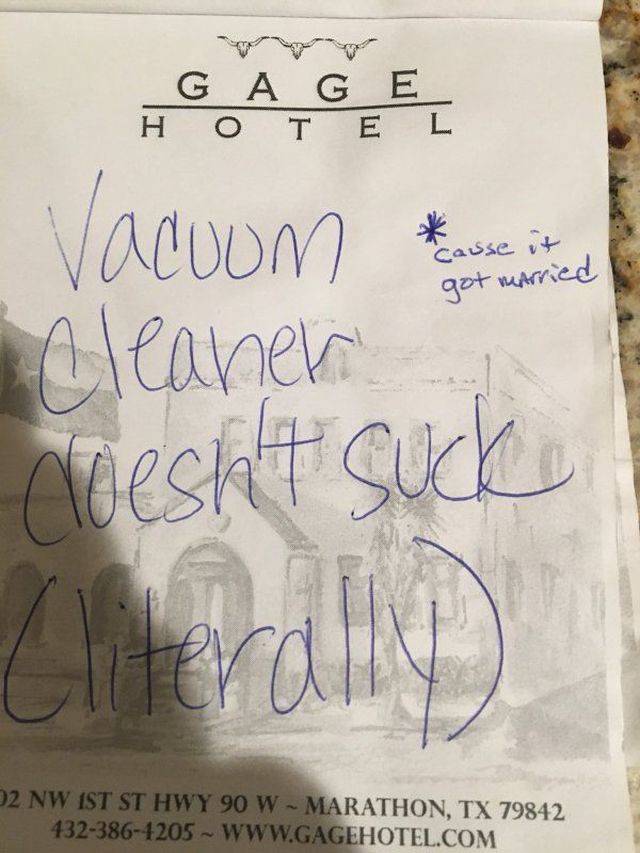 GAGE
HOTEL
Vacuum
cleaner
doesn't suck
(literally)
*
causse it
got married
02 NW 1ST ST HWY 90 W ~ MARATHON, TX 79842
432-386-4205 ~ WWW.GAGEHOTEL.COM